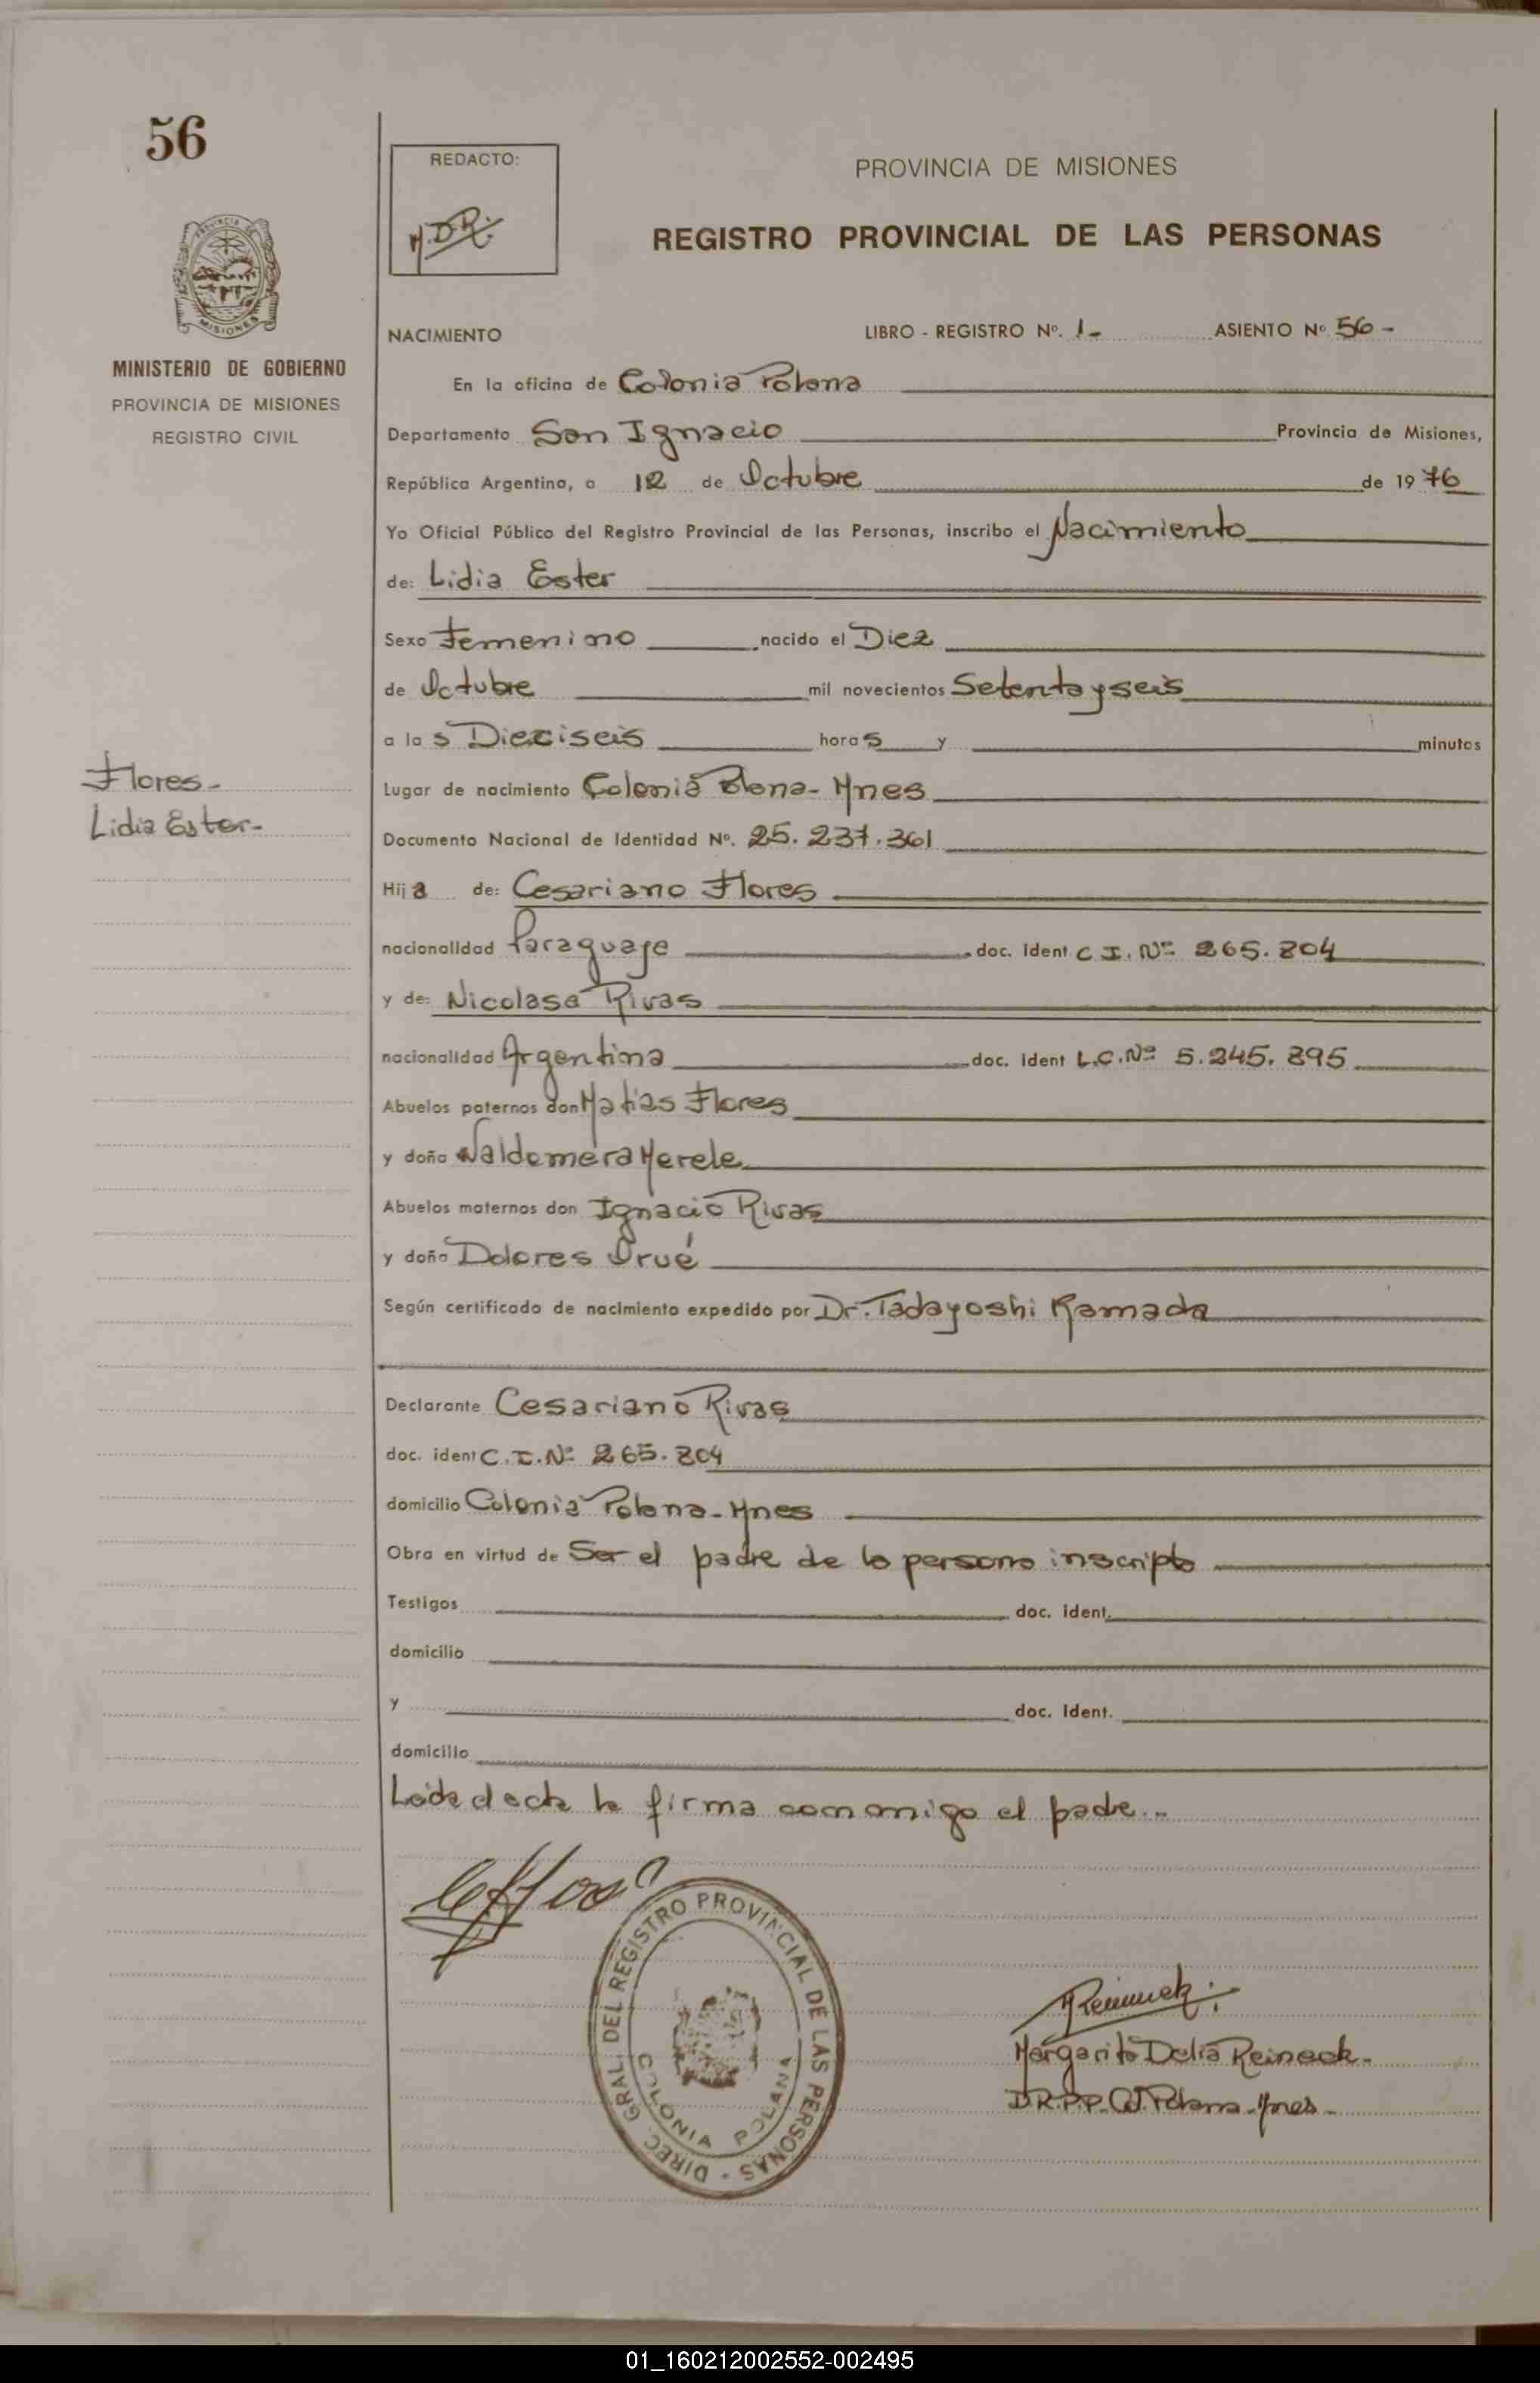 56
REDACTO:
M.D.R.
PROVINCIA DE MISIONES
REGISTRO PROVINCIAL DE LAS PERSONAS
PROVINCIA DE
MISIONES
MINISTERIO DE GOBIERNO
PROVINCIA DE MISIONES
REGISTRO CIVIL
NACIMIENTO LIBRO - REGISTRO Nº. 1- ASIENTO Nº 56-
En la oficina de Colonia Polana
Departamento San Ignacio Provincia de Misiones,
República Argentina, a 12 de Octubre de 1976
Yo Oficial Público del Registro Provincial de las Personas, inscribo el Nacimiento
de: Lidia Ester
Sexo Femenino nacido el Diez
de Octubre mil novecientos Setenta y seis
a las Dieciseis horas y minutos
Flores-
Lidia Ester-
Lugar de nacimiento Colonia Polana- Mnes
Documento Nacional de Identidad Nº. 25.237.361
Hija de: Cesariano Flores
nacionalidad Paraguaye doc. ident C I. Nº 265.804
y de: Nicolasa Rivas
nacionalidad Argentina doc. ident L.C.Nº 5.245.895
Abuelos paternos don Matias Flores
y doña Waldemera Merele
Abuelos maternos don Ignacio Rivas
y doña Dolores Orué
Según certificado de nacimiento expedido por Dr. Tadayoshi Kamada
Declarante Cesariano Rivas
doc. ident C.I.Nº 265.804
domicilio Colonia Polana-Mnes
Obra en virtud de Ser el padre de la persona inscripta
Testigos doc. ident.
domicilio
y doc. ident.
domicilio
Leida el acta la firma commigo el padre..
DIREC. GRAL. DEL REGISTRO PROVINCIAL DE LAS PERSONAS -
COLONIA POLANA
MReineck
Margarita Delia Reineck-
D.R.P.P. Col. Polana-Mnes-
01_160212002552-002495